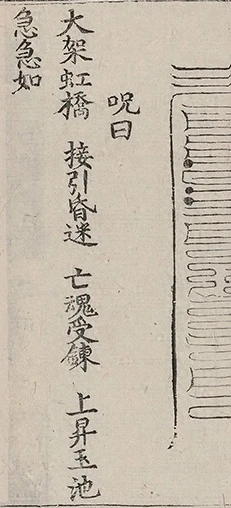 呪曰
大架虹橋 接引昏迷 亡魂受鍊 上昇玉池
急急如